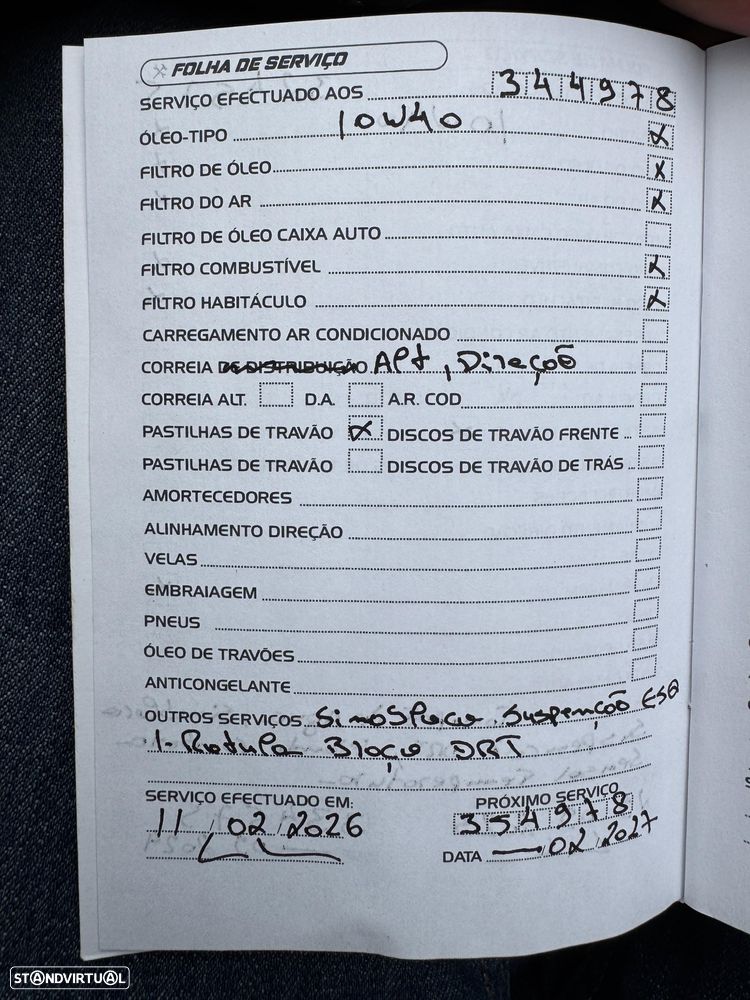 FOLHA DE SERVIÇO
SERVIÇO EFECTUADO AOS 344978
ÓLEO-TIPO 10W40 X
FILTRO DE ÓLEO X
FILTRO DO AR X
FILTRO DE ÓLEO CAIXA AUTO
FILTRO COMBUSTÍVEL X
FILTRO HABITÁCULO X
CARREGAMENTO AR CONDICIONADO
CORREIA DE DISTRIBUIÇÃO Alt, Direçõ
CORREIA ALT. D.A. A.R. COD
PASTILHAS DE TRAVÃO X DISCOS DE TRAVÃO FRENTE
PASTILHAS DE TRAVÃO DISCOS DE TRAVÃO DE TRÁS
AMORTECEDORES
ALINHAMENTO DIREÇÃO
VELAS
EMBRAIAGEM
PNEUS
ÓLEO DE TRAVÕES
ANTICONGELANTE
OUTROS SERVIÇOS Suspençõ ESQ
1- Rotula Braço DRT
SERVIÇO EFECTUADO EM: PRÓXIMO SERVIÇO
11/02/2026 354978
DATA — 02/2027
STANDVIRTUAL